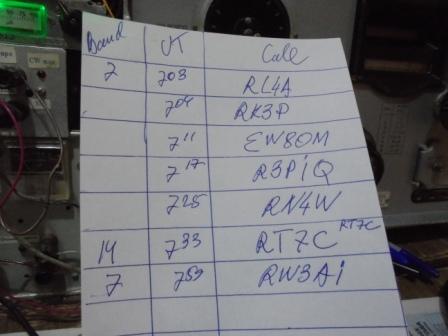 Band UT Call
7 703 RL4A
704 RK3P
711 EW8OM
717 R3PiQ
725 RN4W
14 733 RT7C RT7C
7 759 RW3Ai
CW